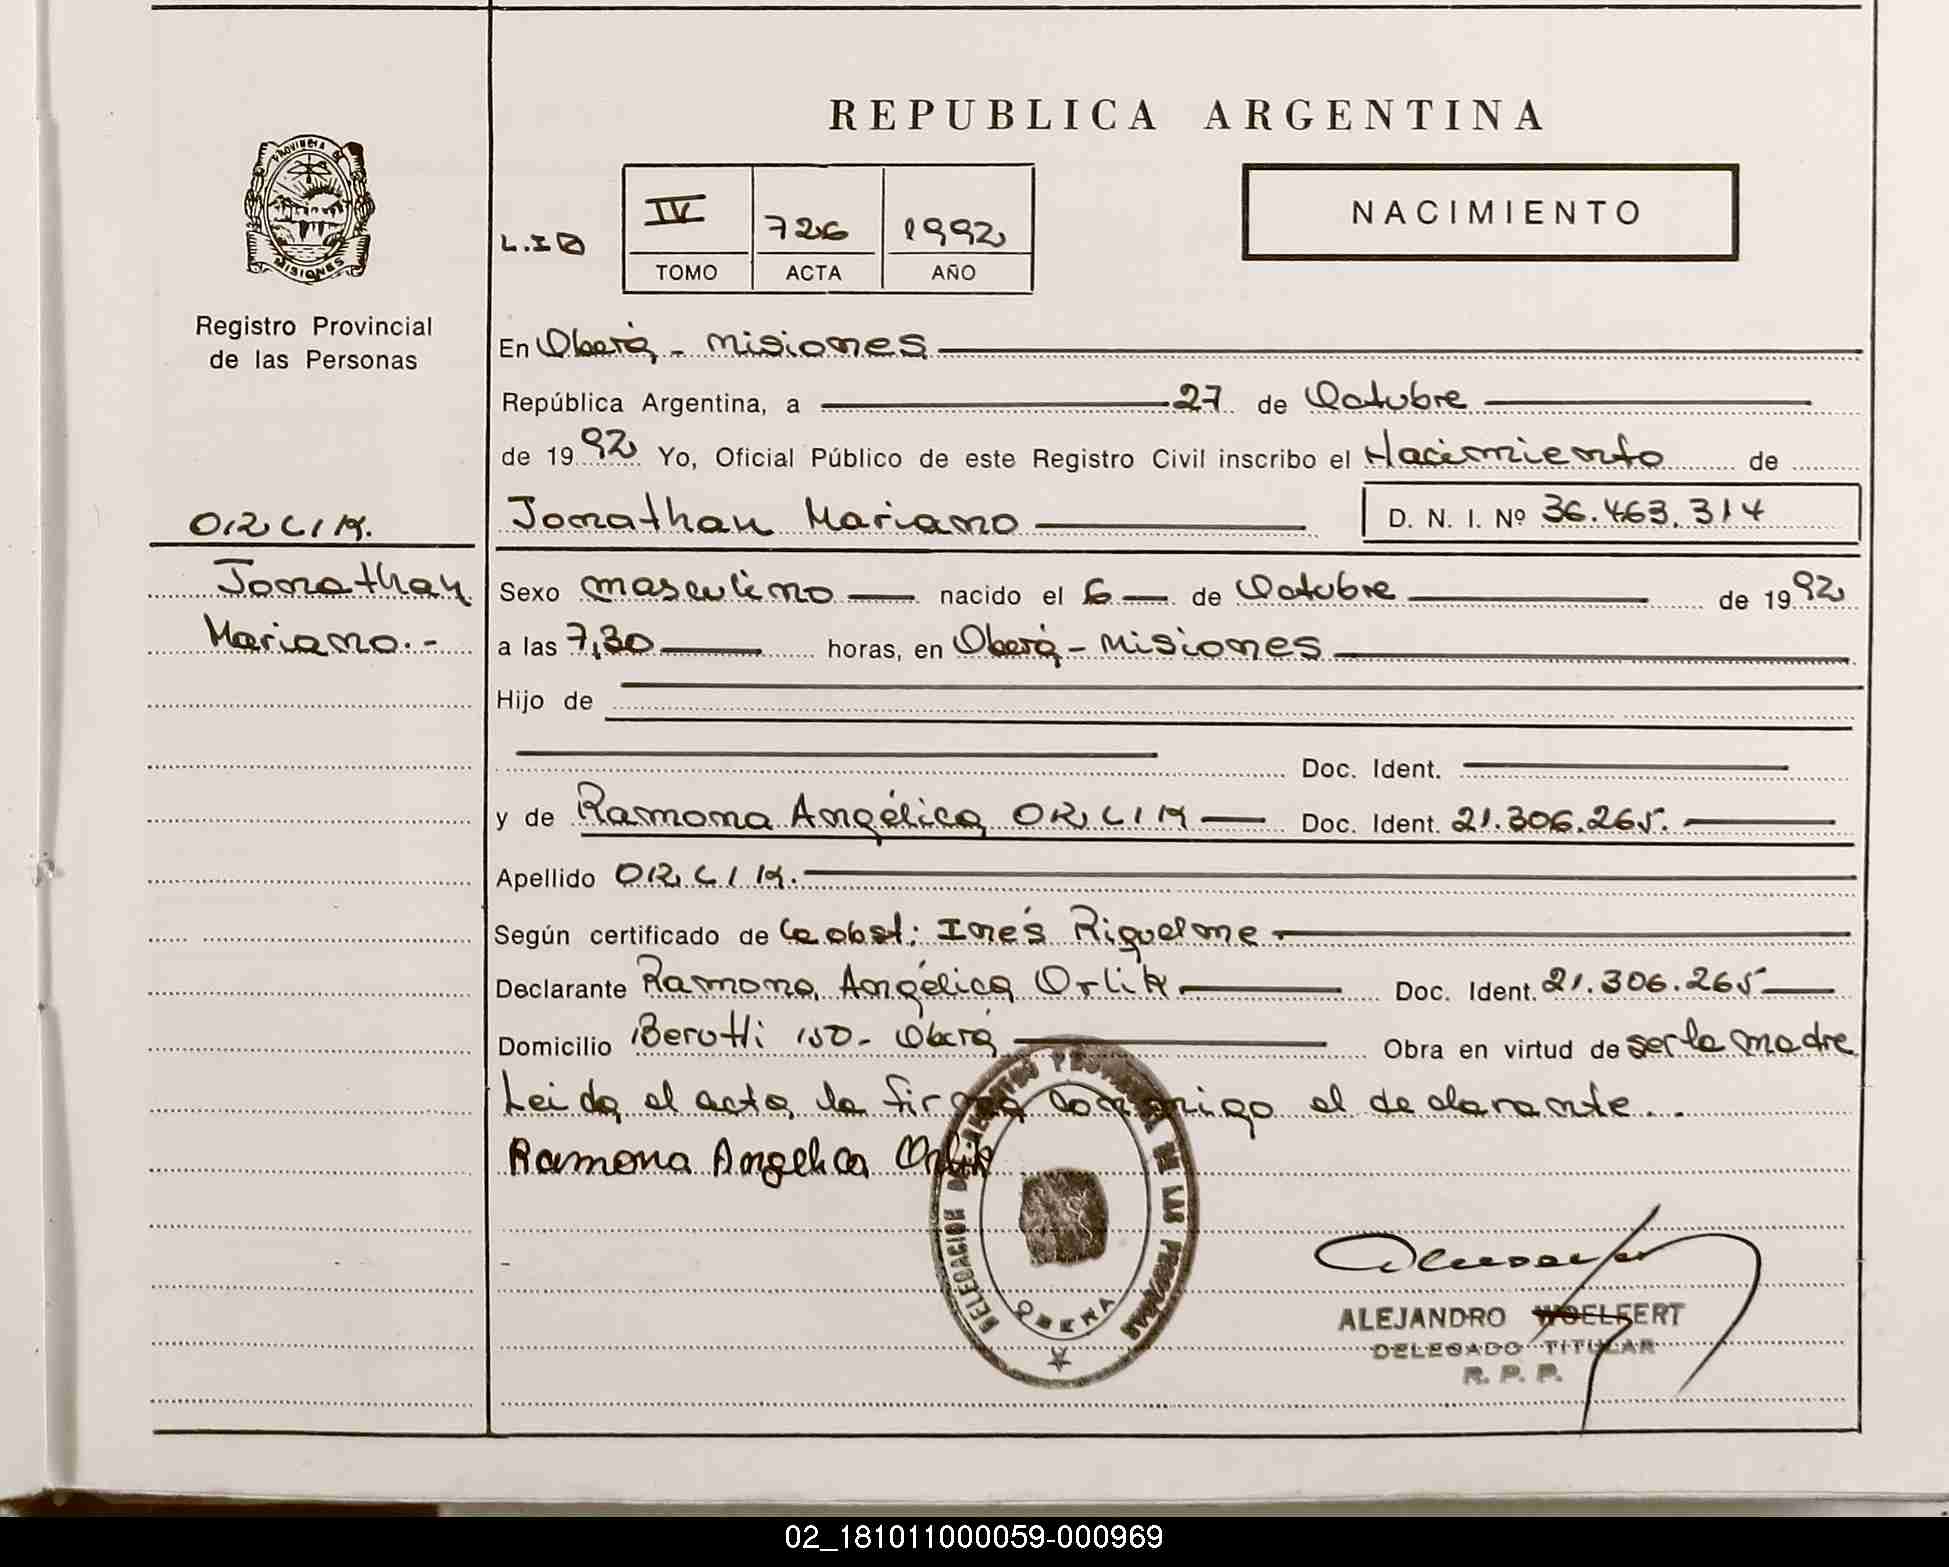 REPUBLICA ARGENTINA
PROVINCIA DE
MISIONES
Registro Provincial
de las Personas
NACIMIENTO
IV 726 1992
TOMO ACTA AÑO
En Oberá - Misiones
República Argentina, a 27 de Octubre
de 1992 Yo, Oficial Público de este Registro Civil inscribo el Nacimiento de
Jonathan Mariano D. N. I. Nº 36.463.314
ORLIK.
Jonathan
Mariano.-
Sexo masculino nacido el 6 de Octubre de 1992
a las 7,30 horas, en Oberá - Misiones
Hijo de
Doc. Ident.
y de Ramona Angélica ORLIK Doc. Ident. 21.306.265.
Apellido ORLIK.
Según certificado de la obst: Inés Riquelme
Declarante Ramona Angélica Orlik Doc. Ident. 21.306.265
Domicilio Berutti 150 - Oberá Obra en virtud de ser la madre
Leida el acta, la firma conmigo el declarante..
Ramona Angelica Orlik
DELEGACION DE REGISTRO PROVINCIAL DE LAS PERSONAS
OBERA
ALEJANDRO WOELFERT
DELEGADO TITULAR
R. P. P.
02_181011000059-000969